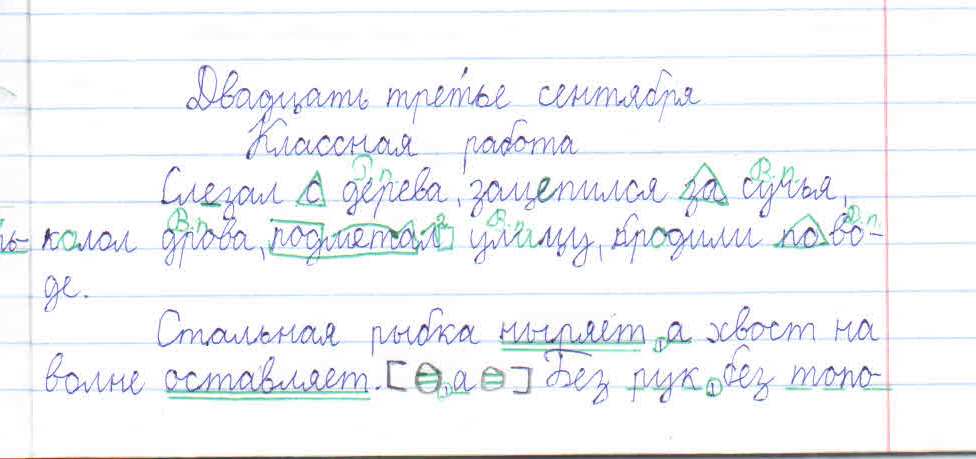 Двадцать третье сентября
Классная работа
Слезал с дерева, зацепился за сучья,
колол дрова, подметал улицу, бродили по во-
де.
Стальная рыбка ныряет, а хвост на
волне оставляет. [⊖, а ⊖] Без рук, без топо-